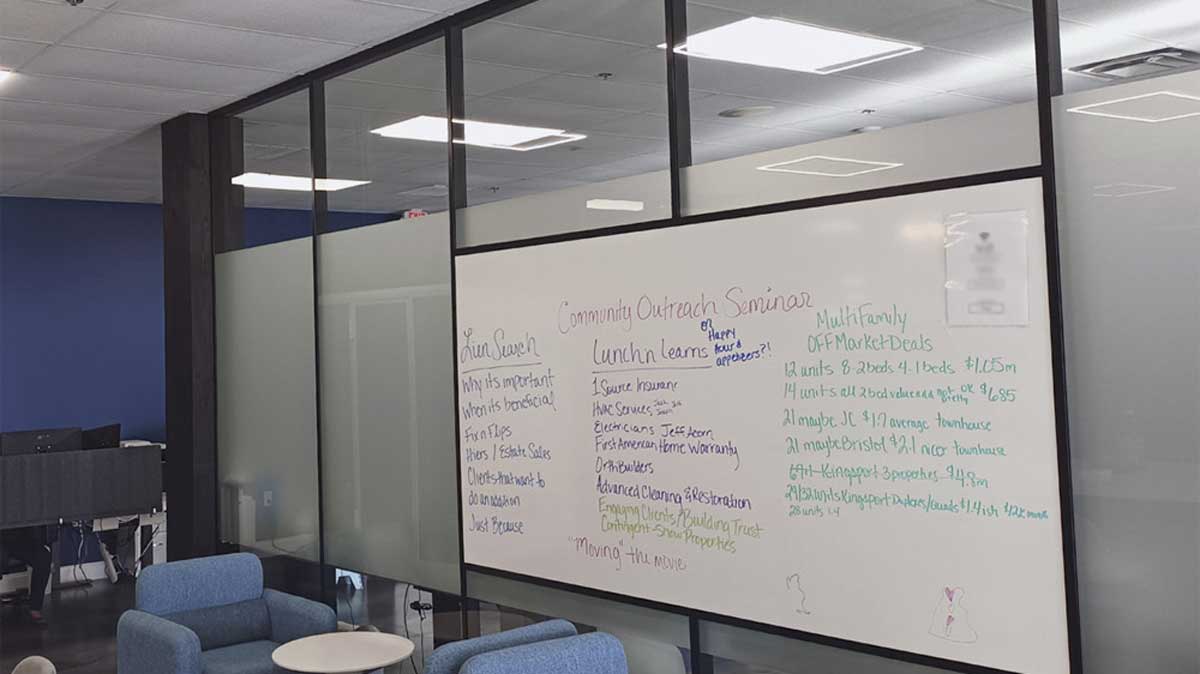 EXIT
Community Outreach Seminar
Lien Search
Why its important
When its beneficial
Fix n Flips
Hiers / Estate Sales
Clients that want to
do an addition
Just Because
Lunch n Learns
or
Happy
hour &
appetizers?!
1 Source Insurance
HVAC Services
Electricians Jeff Acorn
First American Home Warranty
Orth Builders
Advanced Cleaning & Restoration
Engaging Clients / Building Trust
Contingent - Show Properties
"Moving" the movie
MultiFamily
OFF Market Deals
12 units 8-2beds 4-1beds $1.05m
14 units all 2 bed value add not pretty OK $685
21 maybe JC $1.7 average townhouse
21 maybe Bristol $2.1 nicer townhouse
Kingsport 3 properties $4.8m
29/32 units Kingsport Duplexes/Quads $1.4ish
28 units 1.4